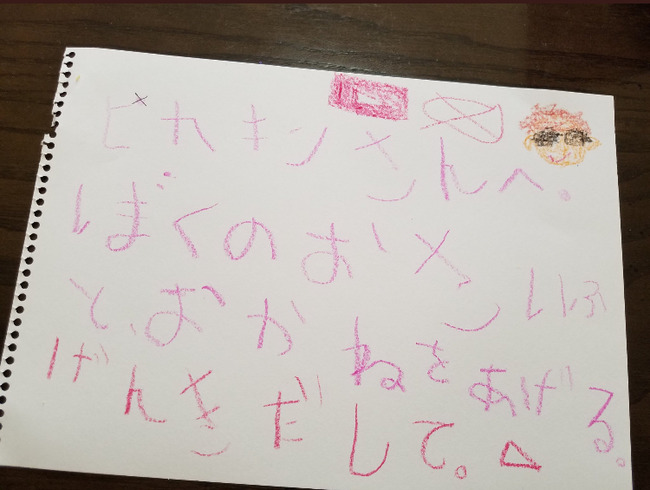 ヒカキンさんへ。
ぼくのおさいふ
と、おかねをあげる。
げんきだして。